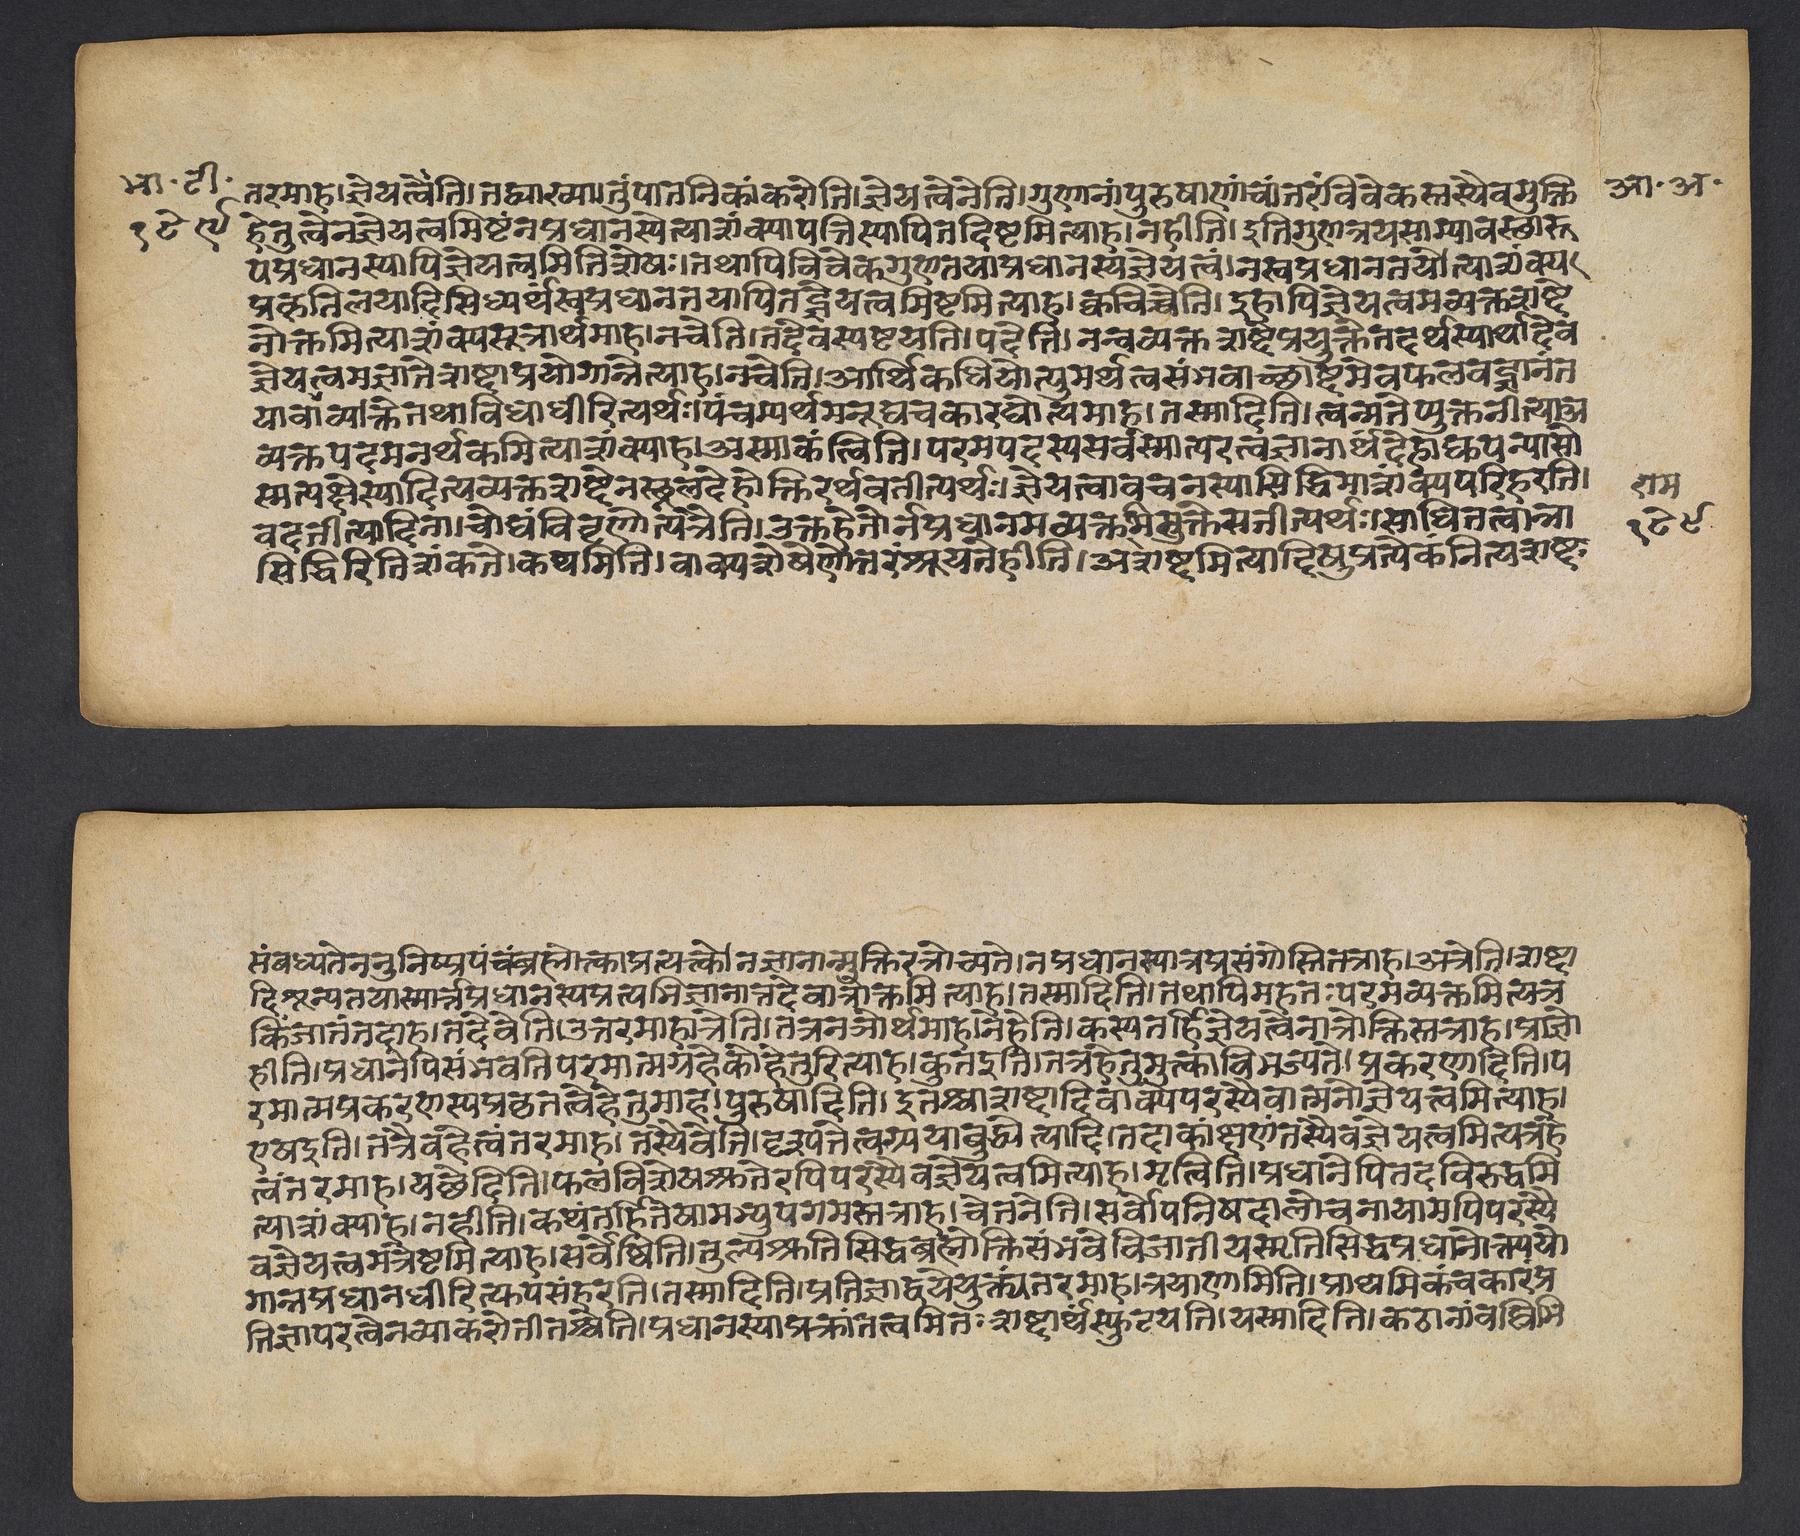 भा॰ टी॰
१८९
आ॰ अ॰
तरमाह।ज्ञेयत्वेति।तद्व्याख्यातुंपातनिकांकरोति।ज्ञेयत्वेनेति।गुणानांपुरुषाणांचांतरंविवेकस्तस्यैवमुक्ति
हेतुत्वेनज्ञेयत्वमिष्टंनप्रधानस्येत्याशंक्यापत्तिस्यापितदिष्टमित्याह।नहीति।इतिगुणत्रयसाम्यावस्थारू
पप्रधानस्यापिज्ञेयत्वमितिशेषः।तथापिविवेकगुणतयाप्रधानस्यज्ञेयत्वं।नस्वप्रधानतयेत्याशंक्य
प्रकृतिलयादिसिध्यर्थंस्वप्रधानतयापितज्ज्ञेयत्वमिष्टमित्याह।क्वचिच्चेति।इहापिज्ञेयत्वमव्यक्तशब्दे
नोक्तमित्याशंक्यसूत्रार्थमाह।नचेति।तदेवस्पष्टयति।पदेति।नन्वव्यक्तशब्देप्रयुक्तेतदर्थस्यार्थादेव
ज्ञेयत्वमज्ञातेशब्दाप्रयोगान्नेत्याह।नचेति।आर्थिकधियोत्पुमर्थत्वसंभवाच्छाब्दमेवफलवज्ज्ञानंत
याचाव्यक्तेतथाविधाधीरित्यर्थः।पंचम्यर्थमनूद्यचकारद्योत्यमाह।तस्मादिति।त्वन्मतेप्युक्तनीत्याअ
व्यक्तपदमनर्थकमित्याशंक्याह।अस्माकंत्विति।परमपदस्यसर्वस्मात्परत्वज्ञानार्थंदेहाद्युपन्यासो
स्मत्पक्षेस्यादित्यव्यक्तशब्देनस्थूलदेहोक्तिरर्थवतीत्यर्थः।ज्ञेयत्वावचनस्यासिद्धिमाशंक्यपरिहरति।
राम
१८९
वदतीत्यादिना।चोद्यंविवृणोत्यत्रेति।उक्तहेतोर्नप्रधानमव्यक्तमित्युक्तेसतीत्यर्थः।साधितत्वान्ना
सिद्धिरितिशंकते।कथमिति।वाक्यशेषेणोत्तरंश्रूयतेहीति।अशब्दमित्यादिषुप्रत्येकंनित्यशब्दः
संबध्यतेननुनिष्प्रपंचंब्रह्मोक्त्वाप्रत्यक्त्वेनज्ञानान्मुक्तिरत्रोच्यते।नप्रधानस्यात्रप्रसंगोस्तितत्राह।अत्रेति।शब्दा
दिशून्यतयास्मार्तप्रधानस्यप्रत्यभिज्ञानात्तदेवात्रोक्तमित्याह।तस्मादिति।तथापिमहतःपरमव्यक्तमित्यत्र
किंजातंतदाह।तदेवेति।उत्तरमाहात्रेति।तत्रनञोर्थमाह।नेहेति।कस्यतर्हिज्ञेयत्वेनात्रोक्तिस्तत्राह।प्राज्ञो
हीति।प्रधानेपिसंभवतिपरमात्मग्रहेकोहेतुरित्याह।कुतइति।तत्रहेतुमुक्त्वाविभज्यते।प्रकरणादिति।प
रमात्मप्रकरणस्यप्रकृतत्वेहेतुमाह।पुरुषादिति।इतश्चाशब्दादिवाक्येपरस्यैवात्मनोज्ञेयत्वमित्याह।
एषइति।तत्रैवहेत्वंतरमाह।तस्यैवेति।दृश्यतेत्वग्र्ययाबुद्ध्येत्यादि।तदाकांक्षणंतस्यैवज्ञेयत्वमित्यत्रहे
त्वंतरमाह।यच्छेदिति।फलविशेषश्रुतेरपिपरस्यैवज्ञेयत्वमित्याह।मृत्विति।प्रधानेपितदविरुद्धमि
त्याशंक्याह।नहीति।कथंतर्हितेषामभ्युपगमस्तत्राह।चेतनेति।सर्वोपनिषदालोचनायामपिपरस्यै
वज्ञेयत्वमत्रेष्टमित्याह।सर्वेष्विति।तुल्यश्रुतिसिद्धब्रह्मोक्तिसंभवेविजातीयस्मृतिसिद्धप्रधानोक्त्ययो
गान्नप्रधानधीरित्युपसंहरति।तस्मादिति।प्रतिज्ञाद्वयेयुक्त्यंतरमाह।त्रयाणामिति।प्राथमिकंचकारंप्र
तिज्ञापरत्वेनव्याकरोतीतश्चेति।प्रधानस्याप्रक्रांतत्वमितःशब्दार्थंस्फुटयति।यस्मादिति।कठानांवल्लिमि